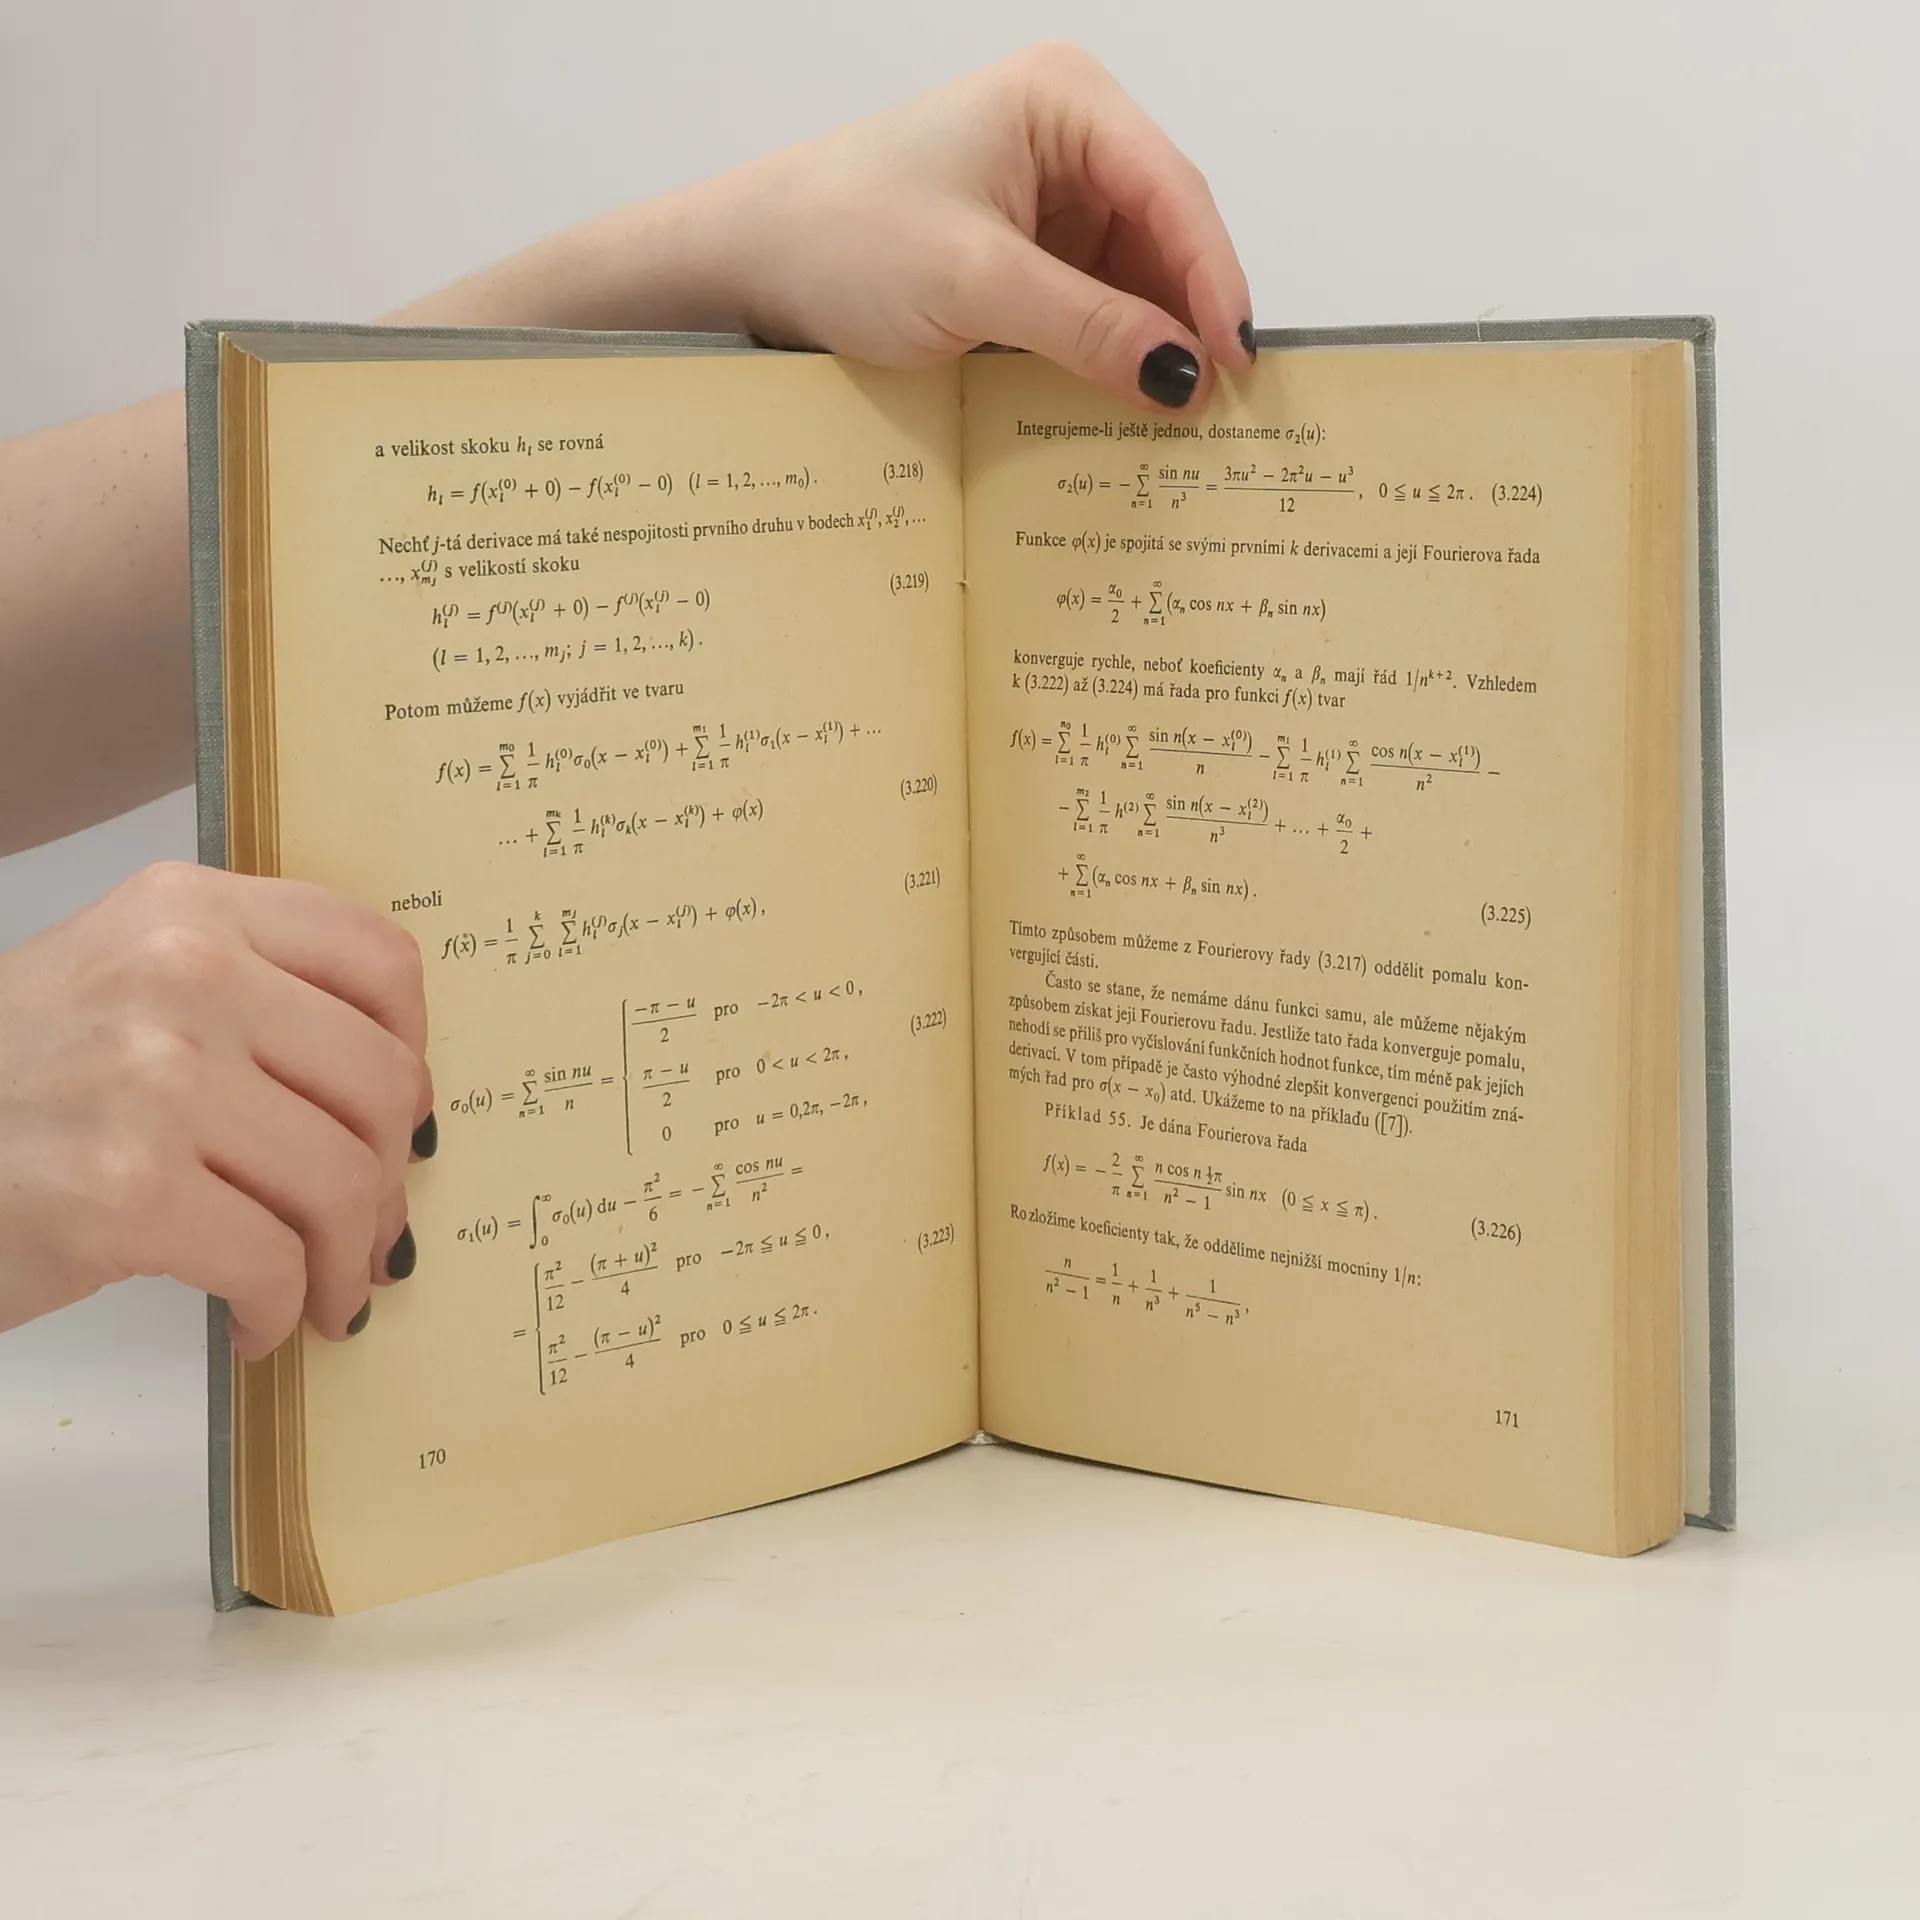 a velikost skoku hₗ se rovná
hₗ = f(xₗ⁽⁰⁾ + 0) − f(xₗ⁽⁰⁾ − 0) (l = 1, 2, ..., m₀). (3.218)
Nechť j-tá derivace má také nespojitosti prvního druhu v bodech x₁⁽ʲ⁾, x₂⁽ʲ⁾, ...
..., x_{mⱼ}⁽ʲ⁾ s velikostí skoku
hₗ⁽ʲ⁾ = f⁽ʲ⁾(xₗ⁽ʲ⁾ + 0) − f⁽ʲ⁾(xₗ⁽ʲ⁾ − 0) (3.219)
(l = 1, 2, ..., mⱼ; j = 1, 2, ..., k).
Potom můžeme f(x) vyjádřit ve tvaru
f(x) = ∑_{l=1}^{m₀} 1/π hₗ⁽⁰⁾σ₀(x − xₗ⁽⁰⁾) + ∑_{l=1}^{m₁} 1/π hₗ⁽¹⁾σ₁(x − xₗ⁽¹⁾) + ...
... + ∑_{l=1}^{mₖ} 1/π hₗ⁽ᵏ⁾σₖ(x − xₗ⁽ᵏ⁾) + φ(x) (3.220)
neboli
f(x) = 1/π ∑_{j=0}^{k} ∑_{l=1}^{mⱼ} hₗ⁽ʲ⁾σⱼ(x − xₗ⁽ʲ⁾) + φ(x), (3.221)
σ₀(u) = ∑_{n=1}^{∞} sin nu / n = { (−π − u)/2 pro −2π < u < 0,
(π − u)/2 pro 0 < u < 2π, (3.222)
0 pro u = 0,2π, −2π,
σ₁(u) = ∫₀^∞ σ₀(u) du − π²/6 = −∑_{n=1}^{∞} cos nu / n² =
= { π²/12 − (π + u)²/4 pro −2π ≦ u ≦ 0, (3.223)
π²/12 − (π − u)²/4 pro 0 ≦ u ≦ 2π.
170
Integrujeme-li ještě jednou, dostaneme σ₂(u):
σ₂(u) = −∑_{n=1}^{∞} sin nu / n³ = (3πu² − 2π²u − u³)/12, 0 ≦ u ≦ 2π. (3.224)
Funkce φ(x) je spojitá se svými prvními k derivacemi a její Fourierova řada
φ(x) = α₀/2 + ∑_{n=1}^{∞} (αₙ cos nx + βₙ sin nx)
konverguje rychle, neboť koeficienty αₙ a βₙ mají řád 1/nᵏ⁺². Vzhledem
k (3.222) až (3.224) má řada pro funkci f(x) tvar
f(x) = ∑_{l=1}^{m₀} 1/π hₗ⁽⁰⁾ ∑_{n=1}^{∞} sin n(x − xₗ⁽⁰⁾) / n − ∑_{l=1}^{m₁} 1/π hₗ⁽¹⁾ ∑_{n=1}^{∞} cos n(x − xₗ⁽¹⁾) / n² −
− ∑_{l=1}^{m₂} 1/π h⁽²⁾ ∑_{n=1}^{∞} sin n(x − xₗ⁽²⁾) / n³ + ... + α₀/2 +
+ ∑_{n=1}^{∞} (αₙ cos nx + βₙ sin nx). (3.225)
Tímto způsobem můžeme z Fourierovy řady (3.217) oddělit pomalu kon-
vergující části.
Často se stane, že nemáme dánu funkci samu, ale můžeme nějakým
způsobem získat její Fourierovu řadu. Jestliže tato řada konverguje pomalu,
nehodí se příliš pro vyčíslování funkčních hodnot funkce, tím méně pak jejích
derivací. V tom případě je často výhodné zlepšit konvergenci použitím zná-
mých řad pro σ(x − x₀) atd. Ukážeme to na příkladu ([7]).
Příklad 55. Je dána Fourierova řada
f(x) = −2/π ∑_{n=1}^{∞} (n cos n ½π)/(n² − 1) sin nx (0 ≦ x ≦ π). (3.226)
Rozložíme koeficienty tak, že oddělíme nejnižší mocniny 1/n:
n/(n² − 1) = 1/n + 1/n³ + 1/(n⁵ − n³),
171